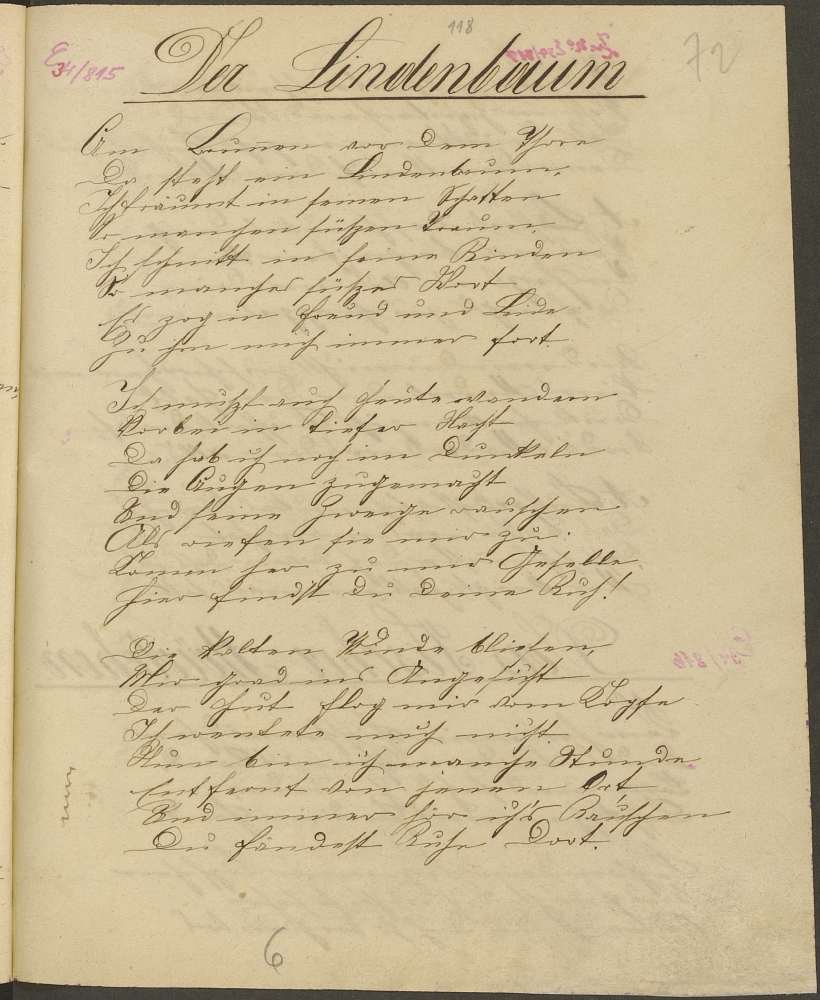 118
72
E 34/815
Der Lindenbaum
Am Brunnen vor dem Thore
Da steht ein Lindenbaum,
Ich träumt in seinen Schatten
So manchen süßen Traum.
Ich schnitt in seine Rinden
So manches süßes Wort
Es zog in Freud und Leide
Zu ihn mich immer fort.
Ich mußt auch heute wandern
Vorbei in tiefer Nacht
Da hab ich noch im Dunkeln
Die Augen zugemacht
Und seine Zweige rauschen
Als riefen sie mir zu:
Komm her zu mir Geselle
Hier findst du deine Ruh!
Die kalten Winde bliesen,
Mir grad ins Angesicht
Der Hut flog mir vom Kopfe
Ich wentete mich nicht
Nun bin ich manche Stunde
Entfernt von jenen Ort
Und immer hör ich's Rauschen
Du fändest Ruhe dort.
6